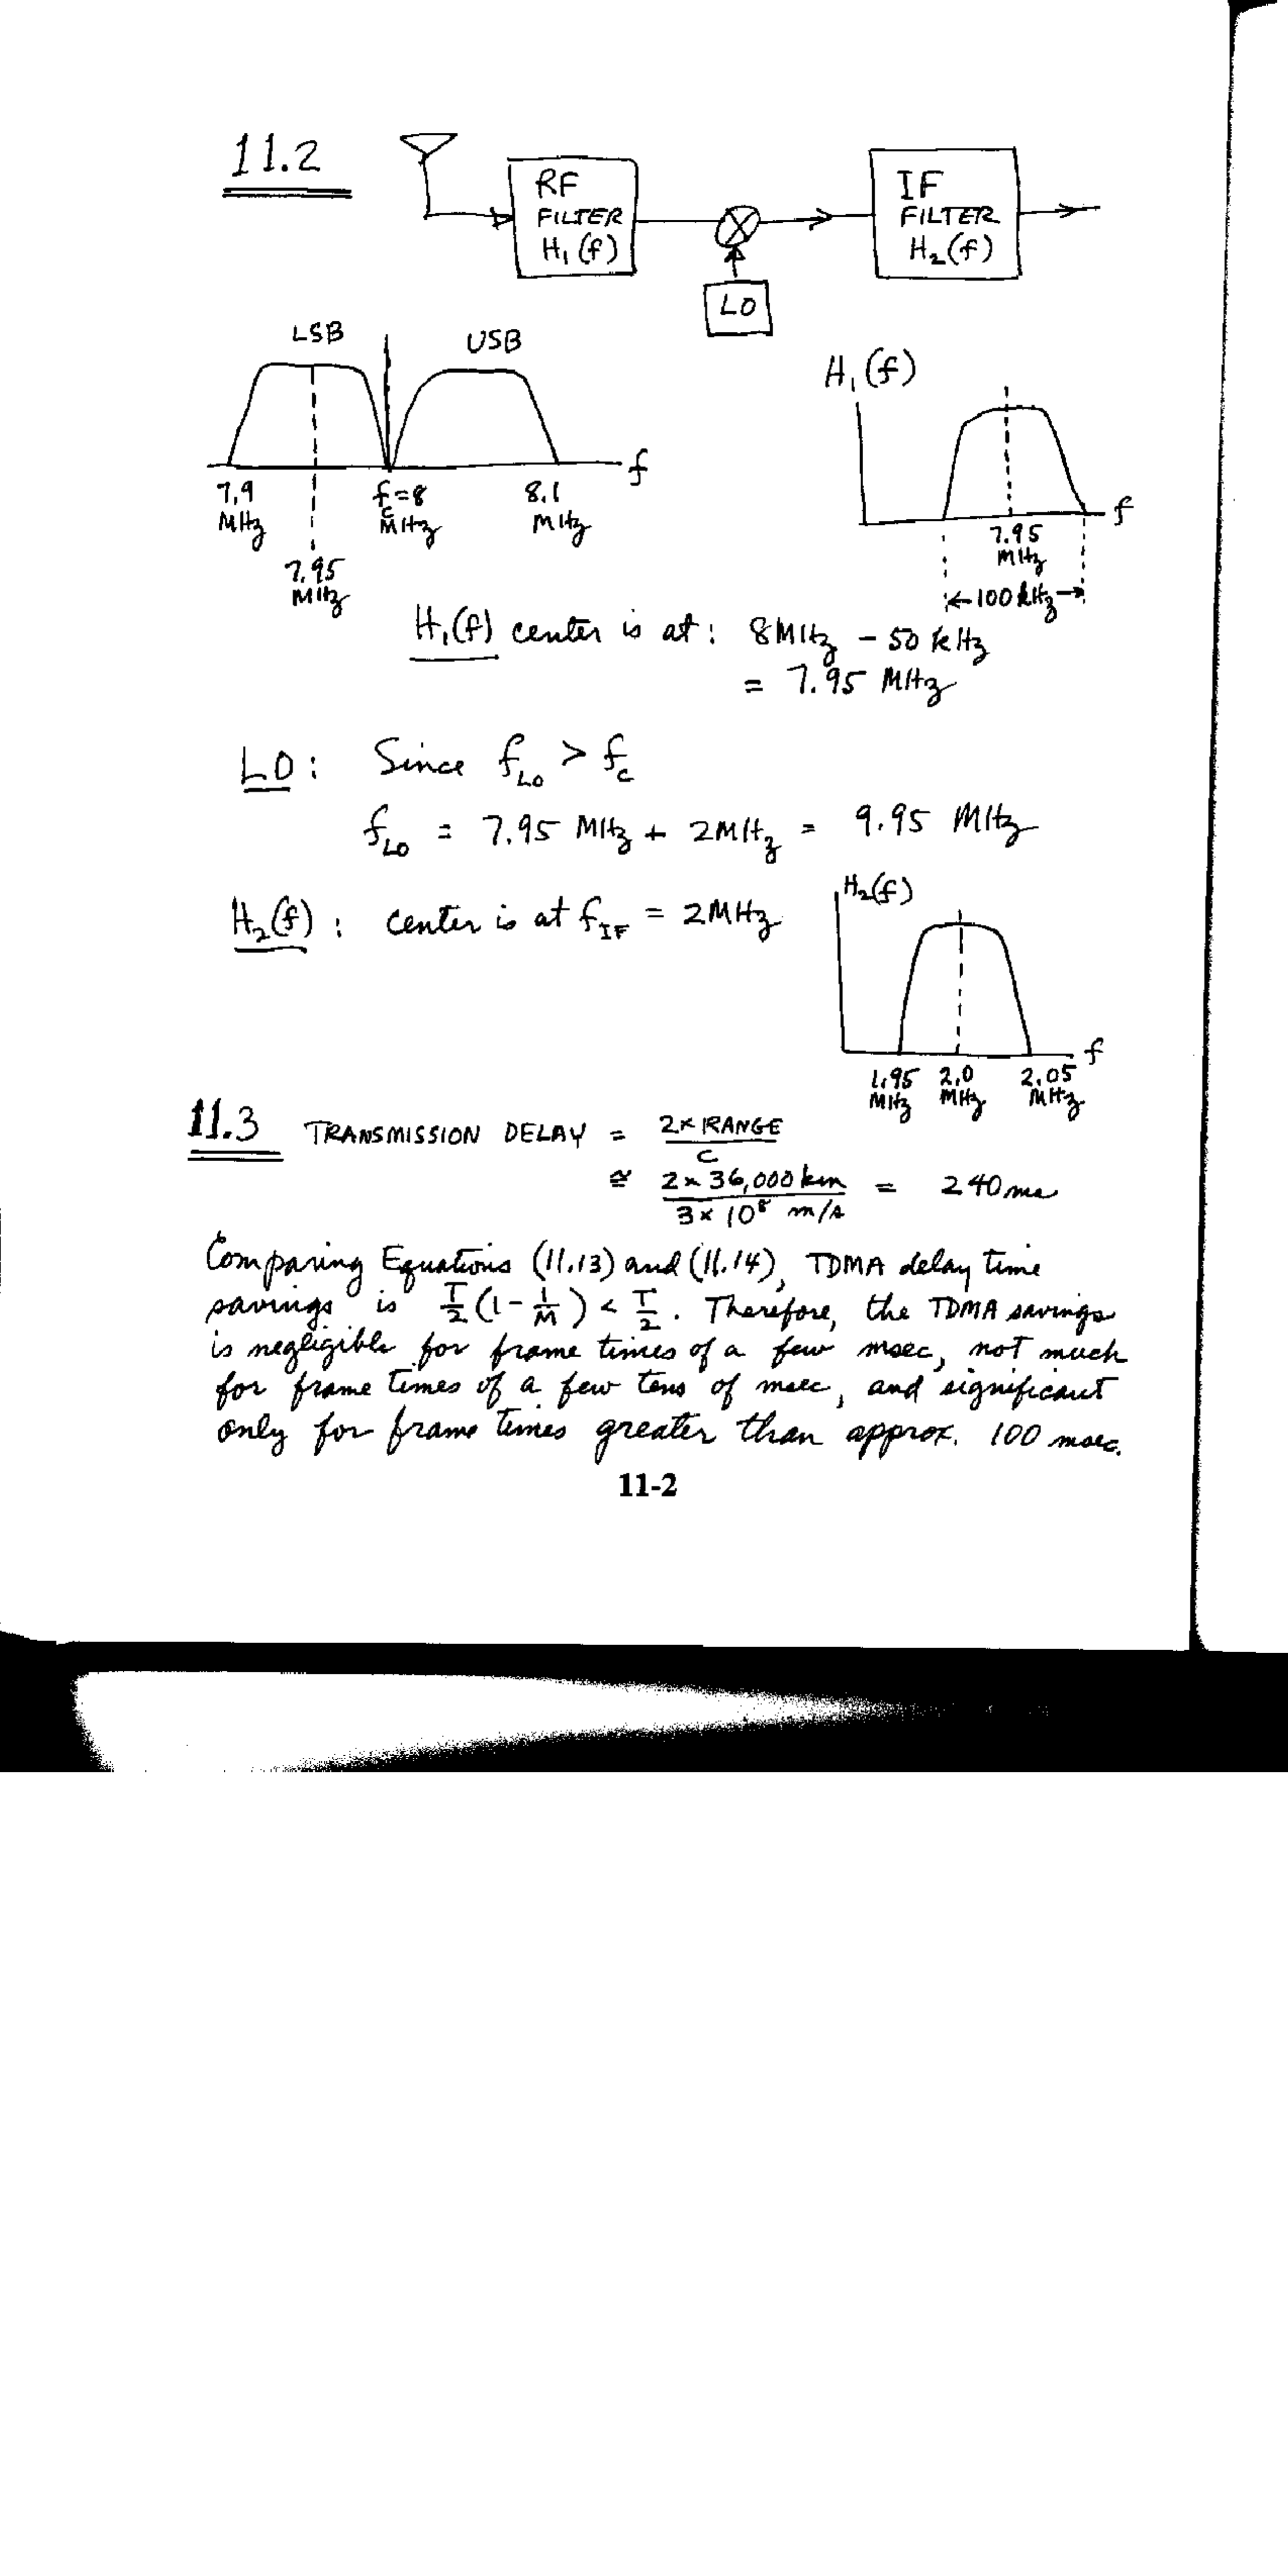 11.2
RF
FILTER
H₁(f)
LO
IF
FILTER
H₂(f)
LSB
USB
f
7.9
MHz
7.95
MHz
f_c=8
MHz
8.1
MHz
H₁(f)
f
7.95
MHz
←100 kHz→
H₁(f) center is at: 8MHz - 50 kHz
= 7.95 MHz
LO: Since f_LO > f_c
f_LO = 7.95 MHz + 2MHz = 9.95 MHz
H₂(f): center is at f_IF = 2MHz
H₂(f)
f
1.95
MHz
2.0
MHz
2.05
MHz
11.3 TRANSMISSION DELAY = 2×RANGE / C
≅ 2×36,000 km / 3×10⁸ m/s = 240 ms
Comparing Equations (11.13) and (11.14), TDMA delay time
savings is T/2 (1 - 1/M) < T/2. Therefore, the TDMA savings
is negligible for frame times of a few msec, not much
for frame times of a few tens of msec, and significant
only for frame times greater than approx. 100 msec.
11-2